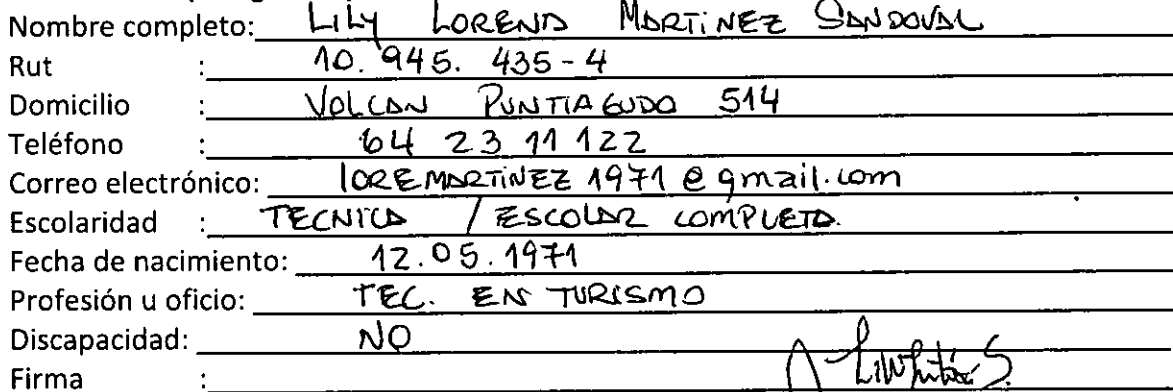 Nombre completo: LILY LORENA MARTINEZ SANDOVAL
Rut : 10.945.435-4
Domicilio : VOLCAN PUNTIAGUDO 514
Teléfono : 64 23 11 122
Correo electrónico: loremartinez1971@gmail.com
Escolaridad : TECNICA / ESCOLAR COMPLETA.
Fecha de nacimiento: 12.05.1971
Profesión u oficio: TEC. EN TURISMO
Discapacidad: NO
Firma :